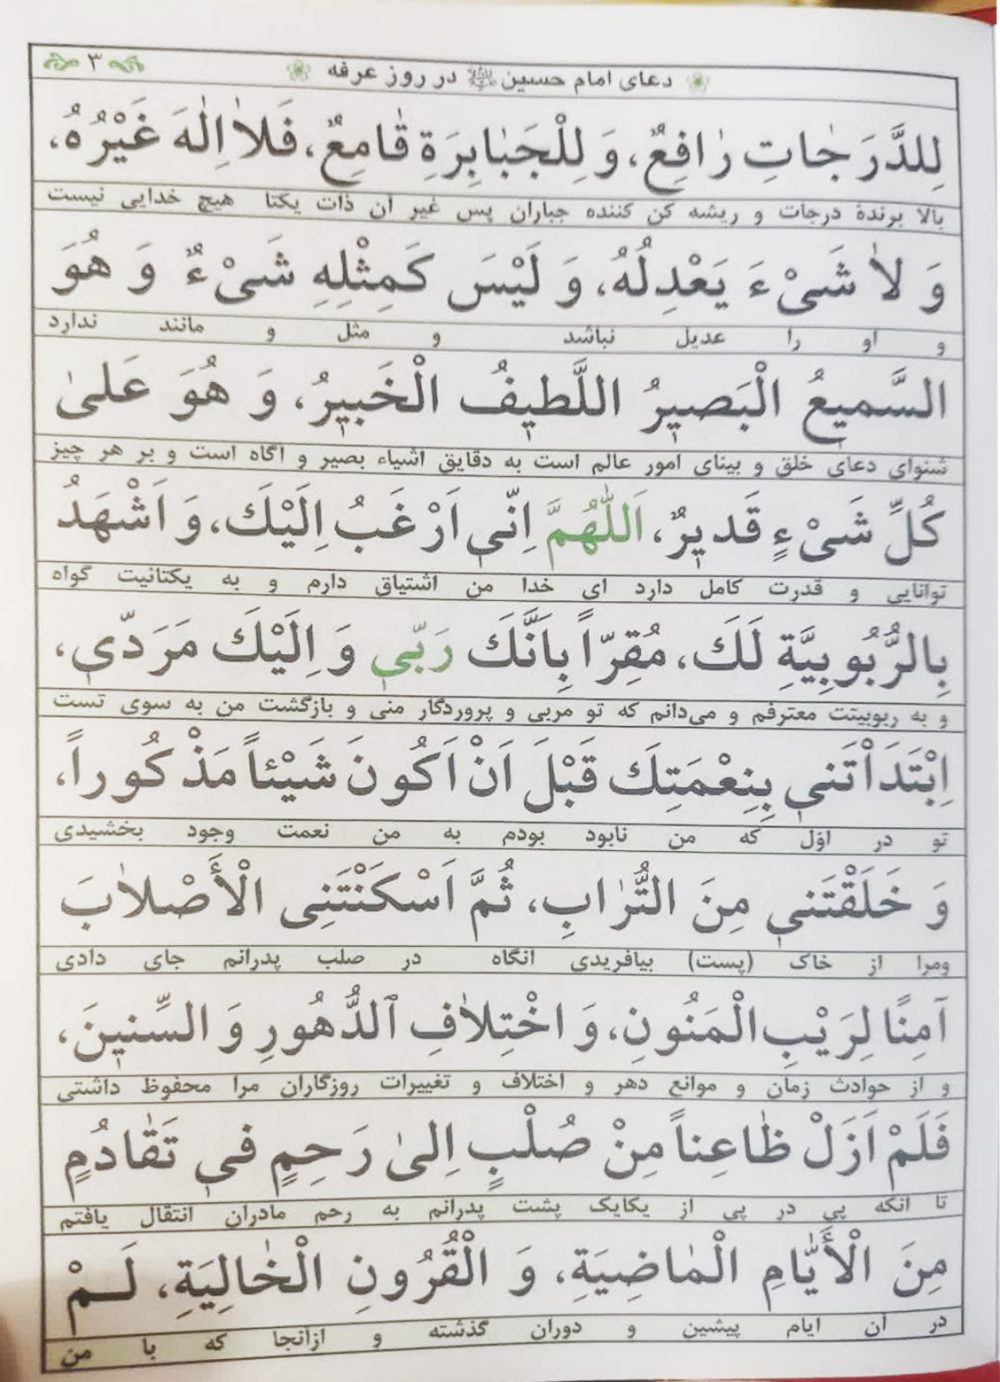 دعای امام حسین در روز عرفه ۳
لِلدَّرَجٰاتِ رٰافِعٌ، وَ لِلْجَبٰابِرَةِ قٰامِعٌ، فَلاٰ اِلٰهَ غَيْرُهُ،
بالا برندهٔ درجات و ریشه کن کننده جباران پس غیر آن ذات یکتا هیچ خدایی نیست
وَ لاٰ شَیْءَ يَعْدِلُهُ، وَ لَيْسَ كَمِثْلِهِ شَیْءٌ وَ هُوَ
و او را عدیل نباشد و مثل و مانند ندارد
السَّميعُ الْبَصيرُ اللَّطيفُ الْخَبيرُ، وَ هُوَ عَلیٰ
شنوای دعای خلق و بینای امور عالم است به دقایق اشیاء بصیر و آگاه است و بر هر چیز
كُلِّ شَیْءٍ قَديرٌ، اَللّٰهُمَّ اِنّی اَرْغَبُ اِلَيْكَ، وَ اَشْهَدُ
توانایی و قدرت کامل دارد ای خدا من اشتیاق دارم و به یکتائیت گواه
بِالرُّبُوبِيَّةِ لَكَ، مُقِرّاً بِاَنَّكَ رَبّی وَ اِلَيْكَ مَرَدّی،
و به ربوبیتت معترفم و می‌دانم که تو مربی و پروردگار منی و بازگشت من به سوی تست
اِبْتَدَاْتَنی بِنِعْمَتِكَ قَبْلَ اَنْ اَكُونَ شَيْئاً مَذْكُوراً،
تو در اوّل که من نابود بودم به من نعمت وجود بخشیدی
وَ خَلَقْتَنی مِنَ التُّرٰابِ، ثُمَّ اَسْكَنْتَنِی الْأَصْلاٰبَ
ومرا از خاک (پست) بیافریدی آنگاه در صلب پدرانم جای دادی
آمِنًا لِرَيْبِ الْمَنُونِ، وَ اخْتِلاٰفِ ٱلدُّهُورِ وَ السِّنينَ،
و از حوادث زمان و موانع دهر و اختلاف و تغییرات روزگاران مرا محفوظ داشتی
فَلَمْ اَزَلْ ظٰاعِناً مِنْ صُلْبٍ اِلیٰ رَحِمٍ فی تَقٰادُمٍ
تا آنکه پی در پی از یکایک پشت پدرانم به رحم مادران انتقال یافتم
مِنَ الْأَيّٰامِ الْمٰاضِيَةِ، وَ الْقُرُونِ الْخٰالِيَةِ، لَـمْ
در آن ایام پیشین و دوران گذشته و ازآنجا که با من